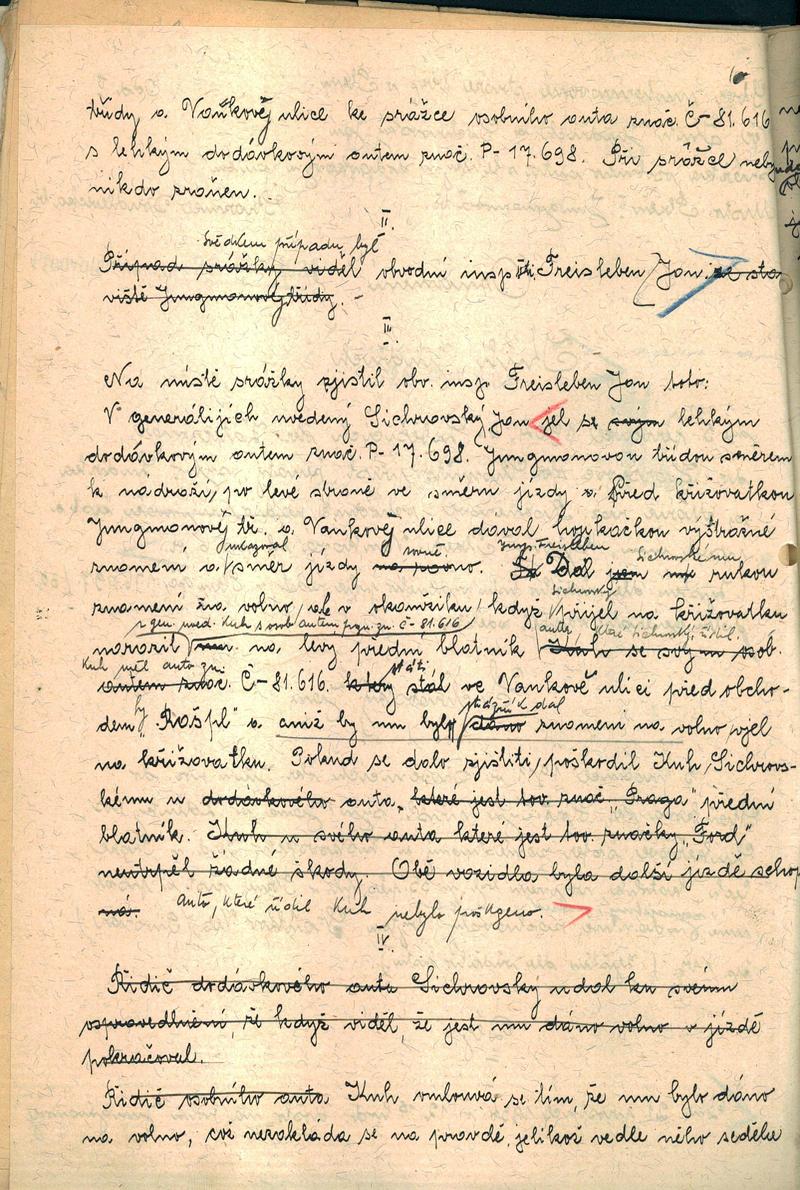 třídy a Vaňkovej ulice ke srážce osobního auta znač. Č-81.616
s lehkým dodávkovým autem znač. P-17.698. Při srážce nebyl
nikdo zraněn.
II.
Svědkem případu byl
Případ srážky viděl obvodní insp. Freisleben Jan. se sta
viště Jungmanovej třídy. -
III.
Na místě srážky zjistil obv. insp. Freisleben Jan toto:
V generálijích uvedený Sichrovský Jan jel se svým lehkým
dodávkovým autem znač. P-17.698. Jungmanovou třídou směrem
k nádraží, po levé straně ve směru jízdy a před křižovatkou
Jungmanovej tř. a Vankovej ulice dával houkačkou výstražné
ukazoval rovně. Insp. Freisleben Sichrovskému
znamení a směr jízdy na rovno. Dal jsem mu rukou
Sichrovský
znamení na volno, ale v okamžiku, když přijel na křižovatku
z gen. uved. Kuh s osob. autem, pozn. zn. Č-81.616 auta, které Sichrovský řídil.
narazil mu na levý přední blatník Kuh se svým osob.
Kuh měl auto zn. státi
autem znač. Č-81.616. který stál ve Vankově ulici před obcho-
strážník dal
dem fy "Rašpl" a aniž by mu bylo dáno znamení na volno, vjel
na křižovatku. Pokud se dalo zjistiti, poškodil Kuh, Sichrovs-
kému u dodávkového auta, které jest tov. znač. "Praga" přední
blatník. Kuh u svého auta které jest tov. značky "Ford"
neutrpěl žádné škody. Obě vozidla byla další jízdě schop
ná. auto, které řídil Kuh nebylo poškozeno.
IV.
Řidič dodávkového auta Sichrovský udal ku svému
ospravedlnění, že když viděl, že jest mu dáno volno v jízdě
pokračoval.
Řidič osobního auta Kuh omlouvá se tím, že mu bylo dáno
na volno, což nezakládá se na pravdě, jelikož vedle něho seděla